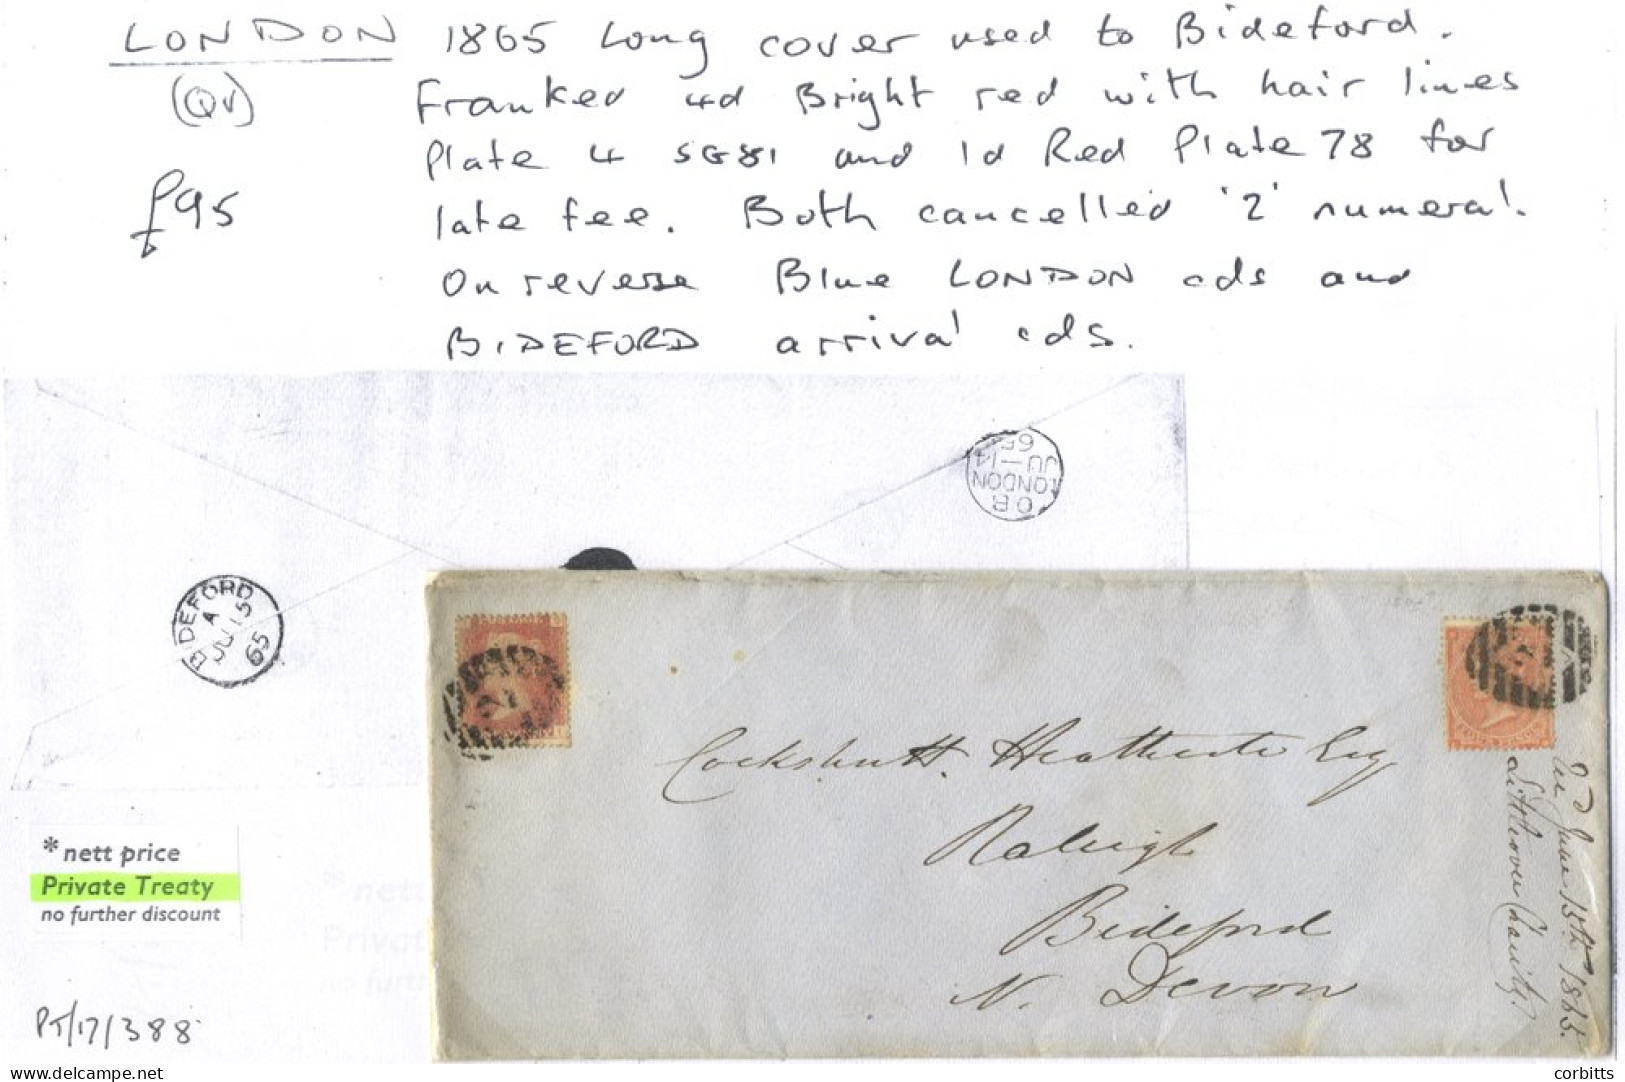 LONDON 1865 Long cover used to Bideford.
(QV) Franked 4d Bright red with hair lines
Plate 4 SG81 and 1d Red Plate 78 for
£95 late fee. Both cancelled '2' numeral.
On reverse Blue LONDON cds and
BIDEFORD arrival cds.
65
JU-14
LONDON
BIDEFORD
A
JU 15
65
2
2
Cockshutt Heathcote Esq
Raleigh
Bideford
N. Devon
June 15th 1865.
Littleover Charity.
*nett price
Private Treaty
no further discount
PT/17/388
www.delcampe.net
corbitts